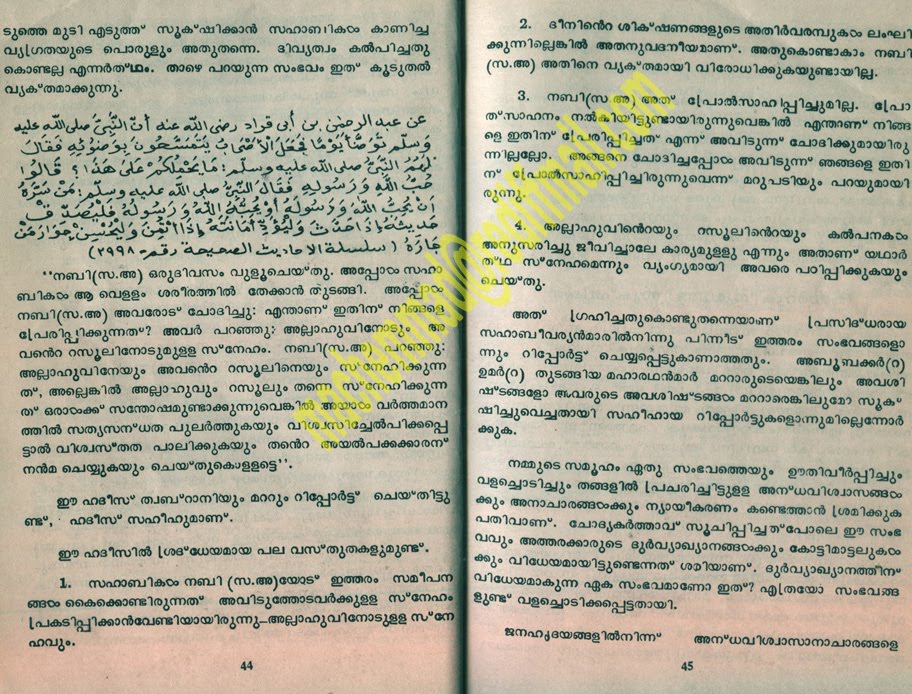 ടുത്തെ മുടി എടുത്ത് സൂക്ഷിക്കാൻ സഹാബികൾ കാണിച്ച
വ്യഗ്രതയുടെ പൊരുളും അതുതന്നെ. ദിവ്യത്വം കൽപിച്ചതു
കൊണ്ടല്ല എന്നർത്ഥം. താഴെ പറയുന്ന സംഭവം ഇത് കൂടുതൽ
വ്യക്തമാക്കുന്നു.
عن عبد الرحمن بن أبي قراد رضي الله عنه أن النبي صلى الله عليه
وسلم توضأ يوما فجعل الأصحاب يتمسحون بوضوئه فقال
لهم النبي صلى الله عليه وسلم: ما يحملكم على هذا؟ قالوا
حب الله ورسوله فقال النبي صلى الله عليه وسلم: من سره
أن يحب الله ورسوله أو يحبه الله ورسوله فليصدق
حديثه إذا حدث وليؤد أمانته إذا ائتمن وليحسن جوار من
جاره (سلسلة الاحاديث الصحيحة رقم- ٢٩٩٨)
''നബി(സ.അ) ഒരുദിവസം വുളൂചെയ്തു. അപ്പോൾ സഹാ
ബികൾ ആ വെള്ളം ശരീരത്തിൽ തേക്കാൻ തുടങ്ങി. അപ്പോൾ
നബി(സ.അ) അവരോട് ചോദിച്ചു: എന്താണ് ഇതിന് നിങ്ങളെ
പ്രേരിപ്പിക്കുന്നത്? അവർ പറഞ്ഞു: അല്ലാഹുവിനോടും അ
വന്റെ റസൂലിനോടുമുള്ള സ്നേഹം. നബി(സ.അ) പറഞ്ഞു:
അല്ലാഹുവിനേയും അവന്റെ റസൂലിനെയും സ്നേഹിക്കുന്ന
ത്, അല്ലെങ്കിൽ അല്ലാഹുവും റസൂലും തന്നെ സ്നേഹിക്കുന്ന
ത് ഒരാൾക്ക് സന്തോഷമുണ്ടാക്കുന്നുവെങ്കിൽ അയാൾ വർത്തമാന
ത്തിൽ സത്യസന്ധത പുലർത്തുകയും വിശ്വസിച്ചേൽപിക്കപ്പെ
ട്ടാൽ വിശ്വസ്തത പാലിക്കുകയും തന്റെ അയൽപക്കക്കാരന്
നൻമ ചെയ്യുകയും ചെയ്തുകൊള്ളട്ടെ''.
ഈ ഹദീസ് ത്വബ്റാനിയും മററും റിപ്പോർട്ട് ചെയ്തിട്ടു
ണ്ട്, ഹദീസ് സഹീഹുമാണ്.
ഈ ഹദീസിൽ ശ്രദ്ധേയമായ പല വസ്തുതകളുമുണ്ട്.
1. സഹാബികൾ നബി (സ.അ)യോട് ഇത്തരം സമീപന
ങ്ങൾ കൈക്കൊണ്ടിരുന്നത് അവിടുത്തോടവർക്കുള്ള സ്നേഹം
പ്രകടിപ്പിക്കാൻവേണ്ടിയായിരുന്നു_അല്ലാഹുവിനോടുള്ള സ്നേ
ഹവും.
44
2. ദീനിന്റെ ശിക്ഷണങ്ങളുടെ അതിർവരമ്പുകൾ ലംഘി
ക്കുന്നില്ലെങ്കിൽ അതനുവദനീയമാണ്. അതുകൊണ്ടാകാം നബി
(സ.അ) അതിനെ വ്യക്തമായി വിരോധിക്കുകയുണ്ടായില്ല.
3. നബി(സ.അ) അത് പ്രോൽസാഹിപ്പിച്ചുമില്ല. പ്രോ
ത്സാഹനം നൽകിയിട്ടുണ്ടായിരുന്നുവെങ്കിൽ എന്താണ് നിങ്ങ
ളെ ഇതിന് പ്രേരിപ്പിച്ചത് എന്ന് അവിടുന്ന് ചോദിക്കുമായിരു
ന്നില്ലല്ലോ. അങ്ങനെ ചോദിച്ചപ്പോൾ അവിടുന്ന് ഞങ്ങളെ ഇതി
ന് പ്രോൽസാഹിപ്പിച്ചിരുന്നുവെന്ന് മറുപടിയും പറയുമായി
രുന്നു.
4. അല്ലാഹുവിന്റെയും റസൂലിന്റെയും കൽപനകൾ
അനുസരിച്ചു ജീവിച്ചാലേ കാര്യമുള്ളു എന്നും അതാണ് യഥാർ
ത്ഥ സ്നേഹമെന്നും വ്യംഗ്യമായി അവരെ പഠിപ്പിക്കുകയും
ചെയ്തു.
അത് ഗ്രഹിച്ചതുകൊണ്ടുതന്നെയാണ് പ്രസിദ്ധരായ
സഹാബീവര്യൻമാരിൽനിന്ന് പിന്നീട് ഇത്തരം സംഭവങ്ങളൊ
ന്നും റിപ്പോർട്ട് ചെയ്യപ്പെട്ടുകാണാത്തതും. അബൂബക്കർ(റ)
ഉമർ(റ) തുടങ്ങിയ മഹാരഥൻമാർ മററാരുടെയെങ്കിലും അവശി
ഷ്ടങ്ങളോ അവരുടെ അവശിഷ്ടങ്ങൾ മററാരെങ്കിലുമോ സൂക്
ഷിച്ചുവെച്ചതായി സഹീഹായ റിപ്പോർട്ടുകളൊന്നുമില്ലെന്നോർ
ക്കുക.
നമ്മുടെ സമൂഹം ഏതു സംഭവത്തെയും ഊതിവീർപ്പിച്ചും
വളച്ചൊടിച്ചും തങ്ങളിൽ പ്രചരിച്ചിട്ടുള്ള അന്ധവിശ്വാസങ്ങൾ
ക്കും അനാചാരങ്ങൾക്കും ന്യായീകരണം കണ്ടെത്താൻ ശ്രമിക്കുക
പതിവാണ്. ചോദ്യകർത്താവ് സൂചിപ്പിച്ചത്പോലെ ഈ സംഭ
വവും അത്തരക്കാരുടെ ദുർവ്യാഖ്യാനങ്ങൾക്കും കോട്ടിമാട്ടലുകൾ
ക്കും വിധേയമായിട്ടുണ്ടെന്നത് ശരിയാണ്. ദുർവ്യാഖ്യാനത്തിന്
വിധേയമാകുന്ന ഏക സംഭവമാണോ ഇത്? എത്രയോ സംഭവങ്ങ
ളുണ്ട് വളച്ചൊടിക്കപ്പെട്ടതായി.
ജനഹൃദയങ്ങളിൽനിന്ന് അന്ധവിശ്വാസാനാചാരങ്ങളെ
45